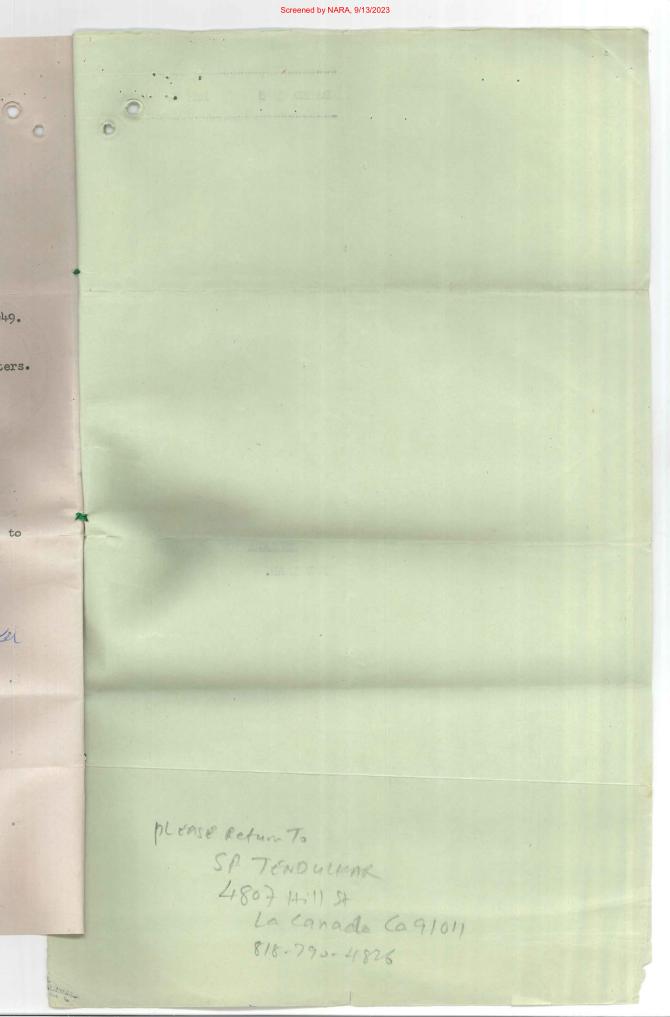 Screened by NARA, 9/13/2023
49.
ters.
to
PLEASE Return To
SP TENDULKAR
4807 Hill St
La Canada Ca 91011
818-790-4826